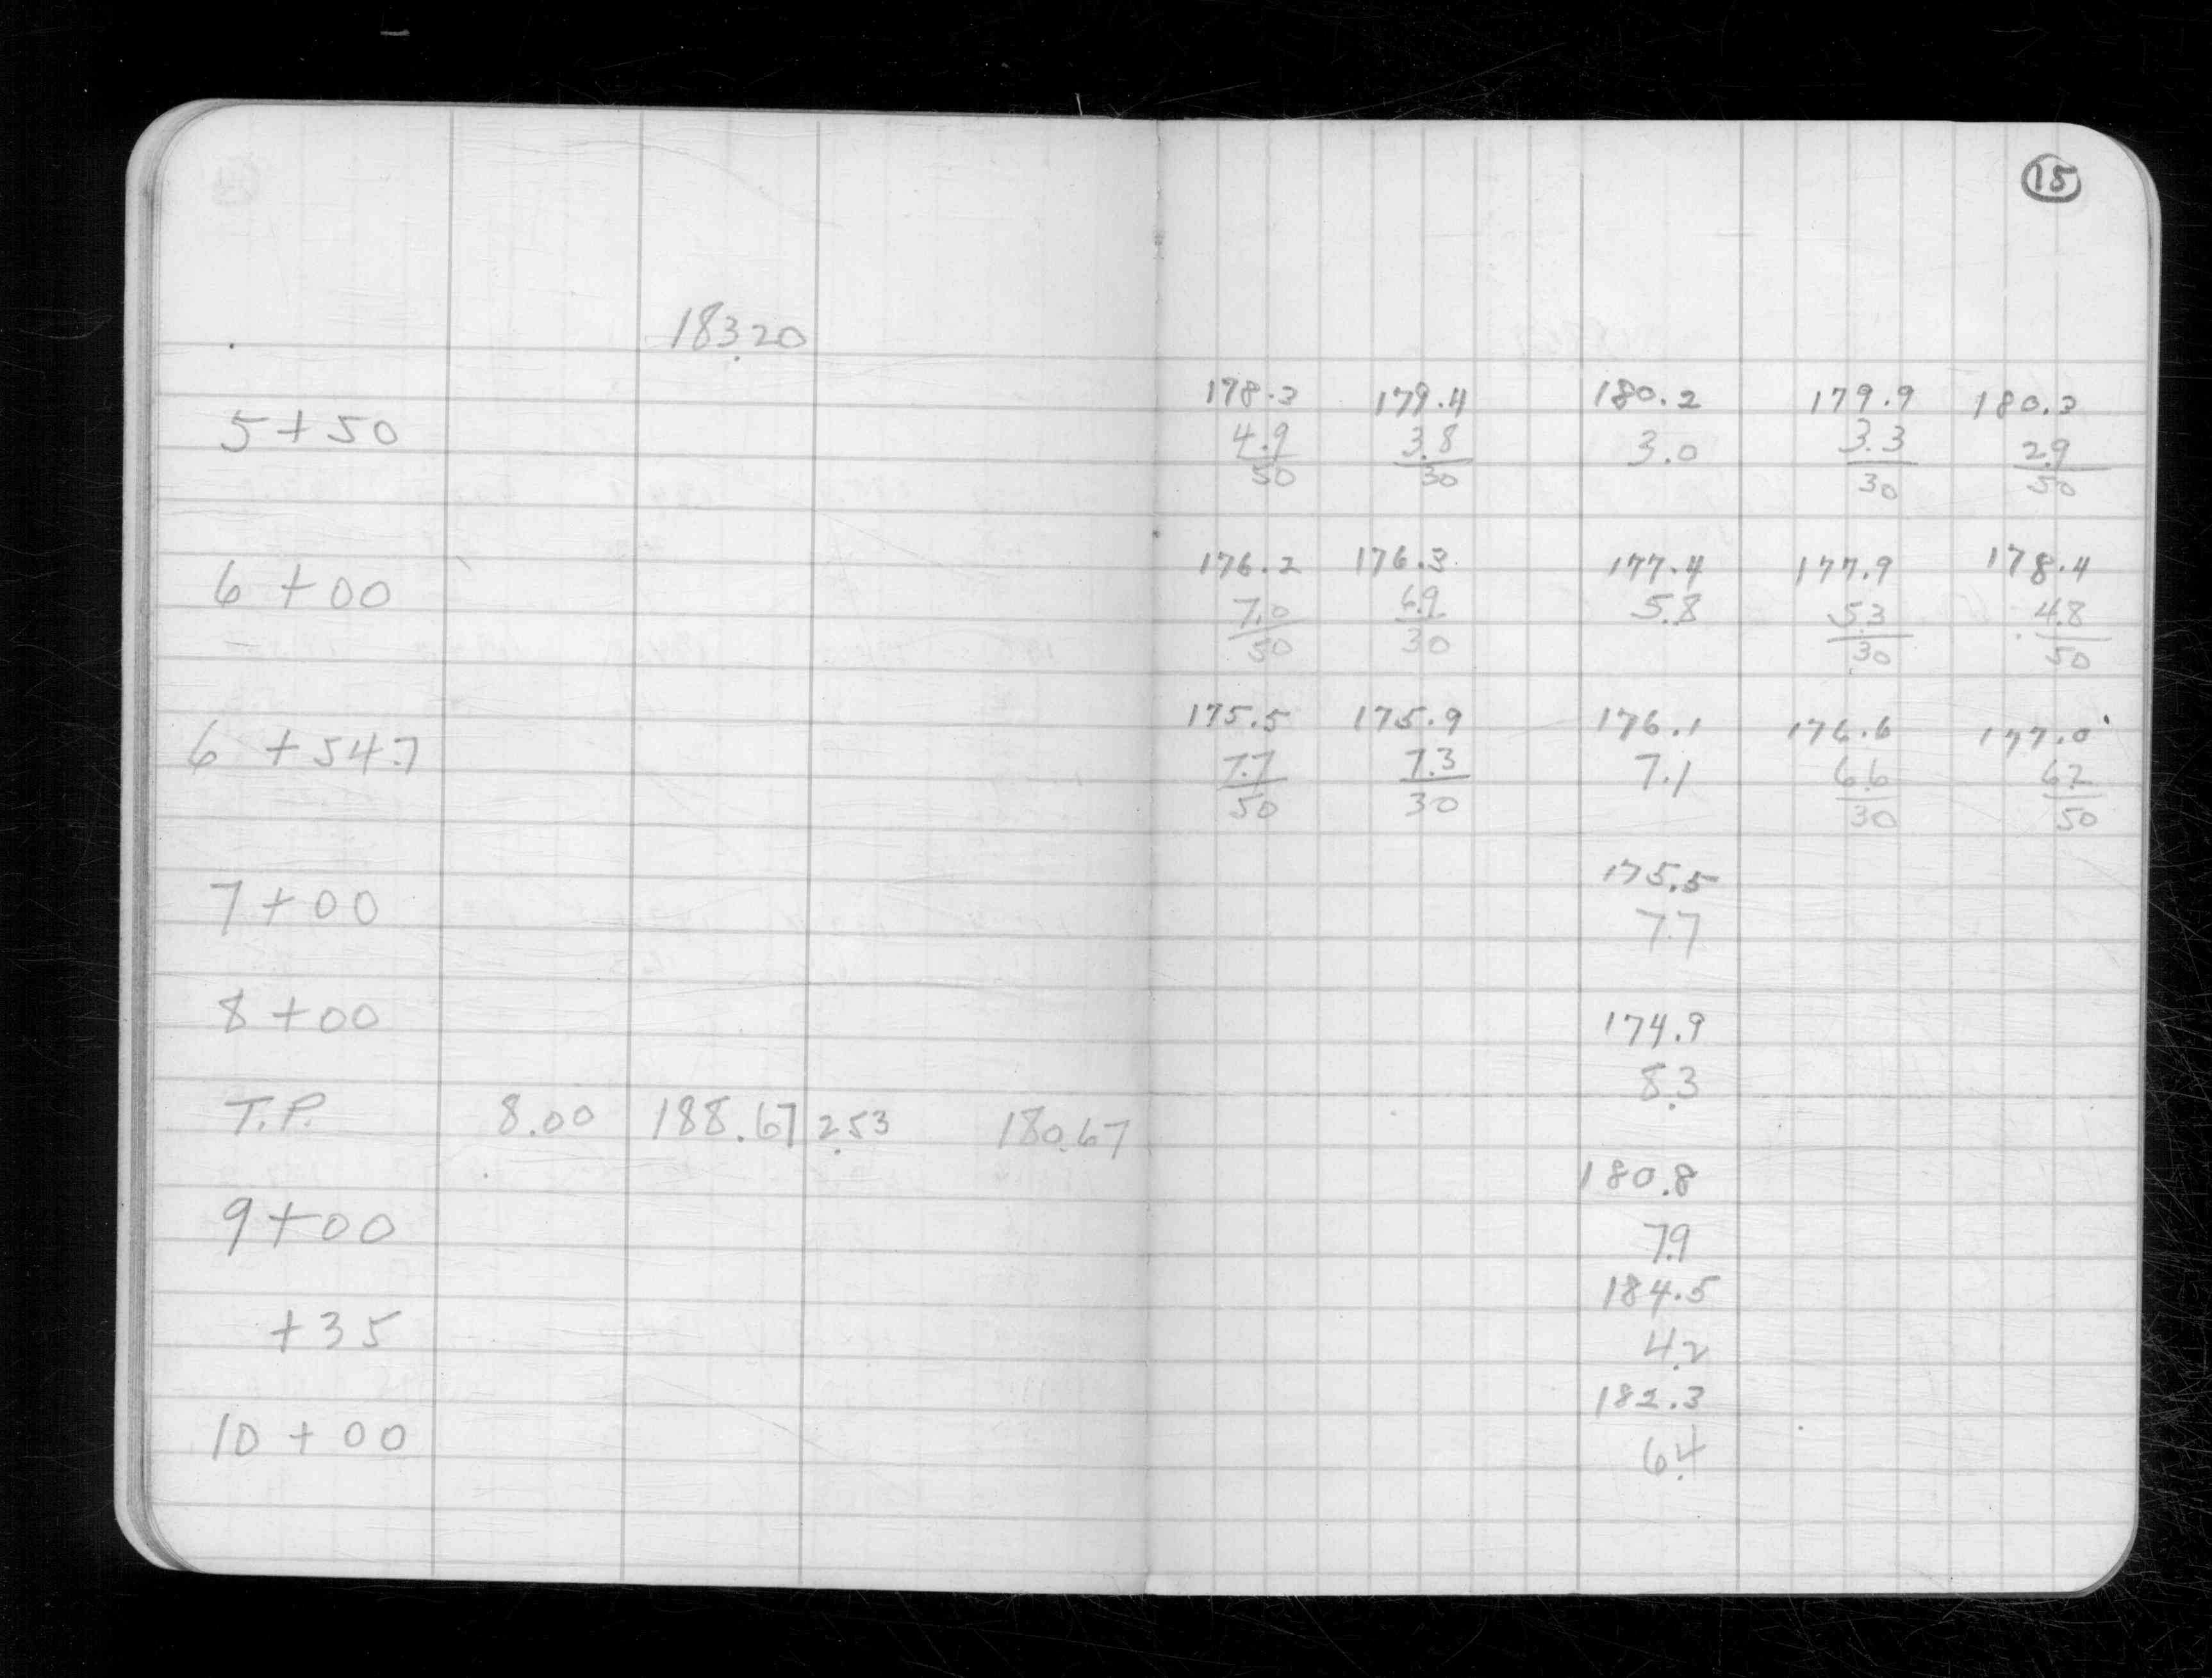 15
183.20
178.3 179.4 180.2 179.9 180.3
5+50 4.9/50 3.8/30 3.0 3.3/30 2.9/50
176.2 176.3 177.4 177.9 178.4
6+00 7.0/50 6.9/30 5.8 5.3/30 4.8/50
175.5 175.9 176.1 176.6 177.0
6+54.7 7.7/50 7.3/30 7.1 6.6/30 6.2/50
175.5
7+00 7.7
174.9
8+00 8.3
T.P. 8.00 188.67 2.53 180.67
180.8
9+00 7.9
184.5
+35 4.2
182.3
10+00 6.4